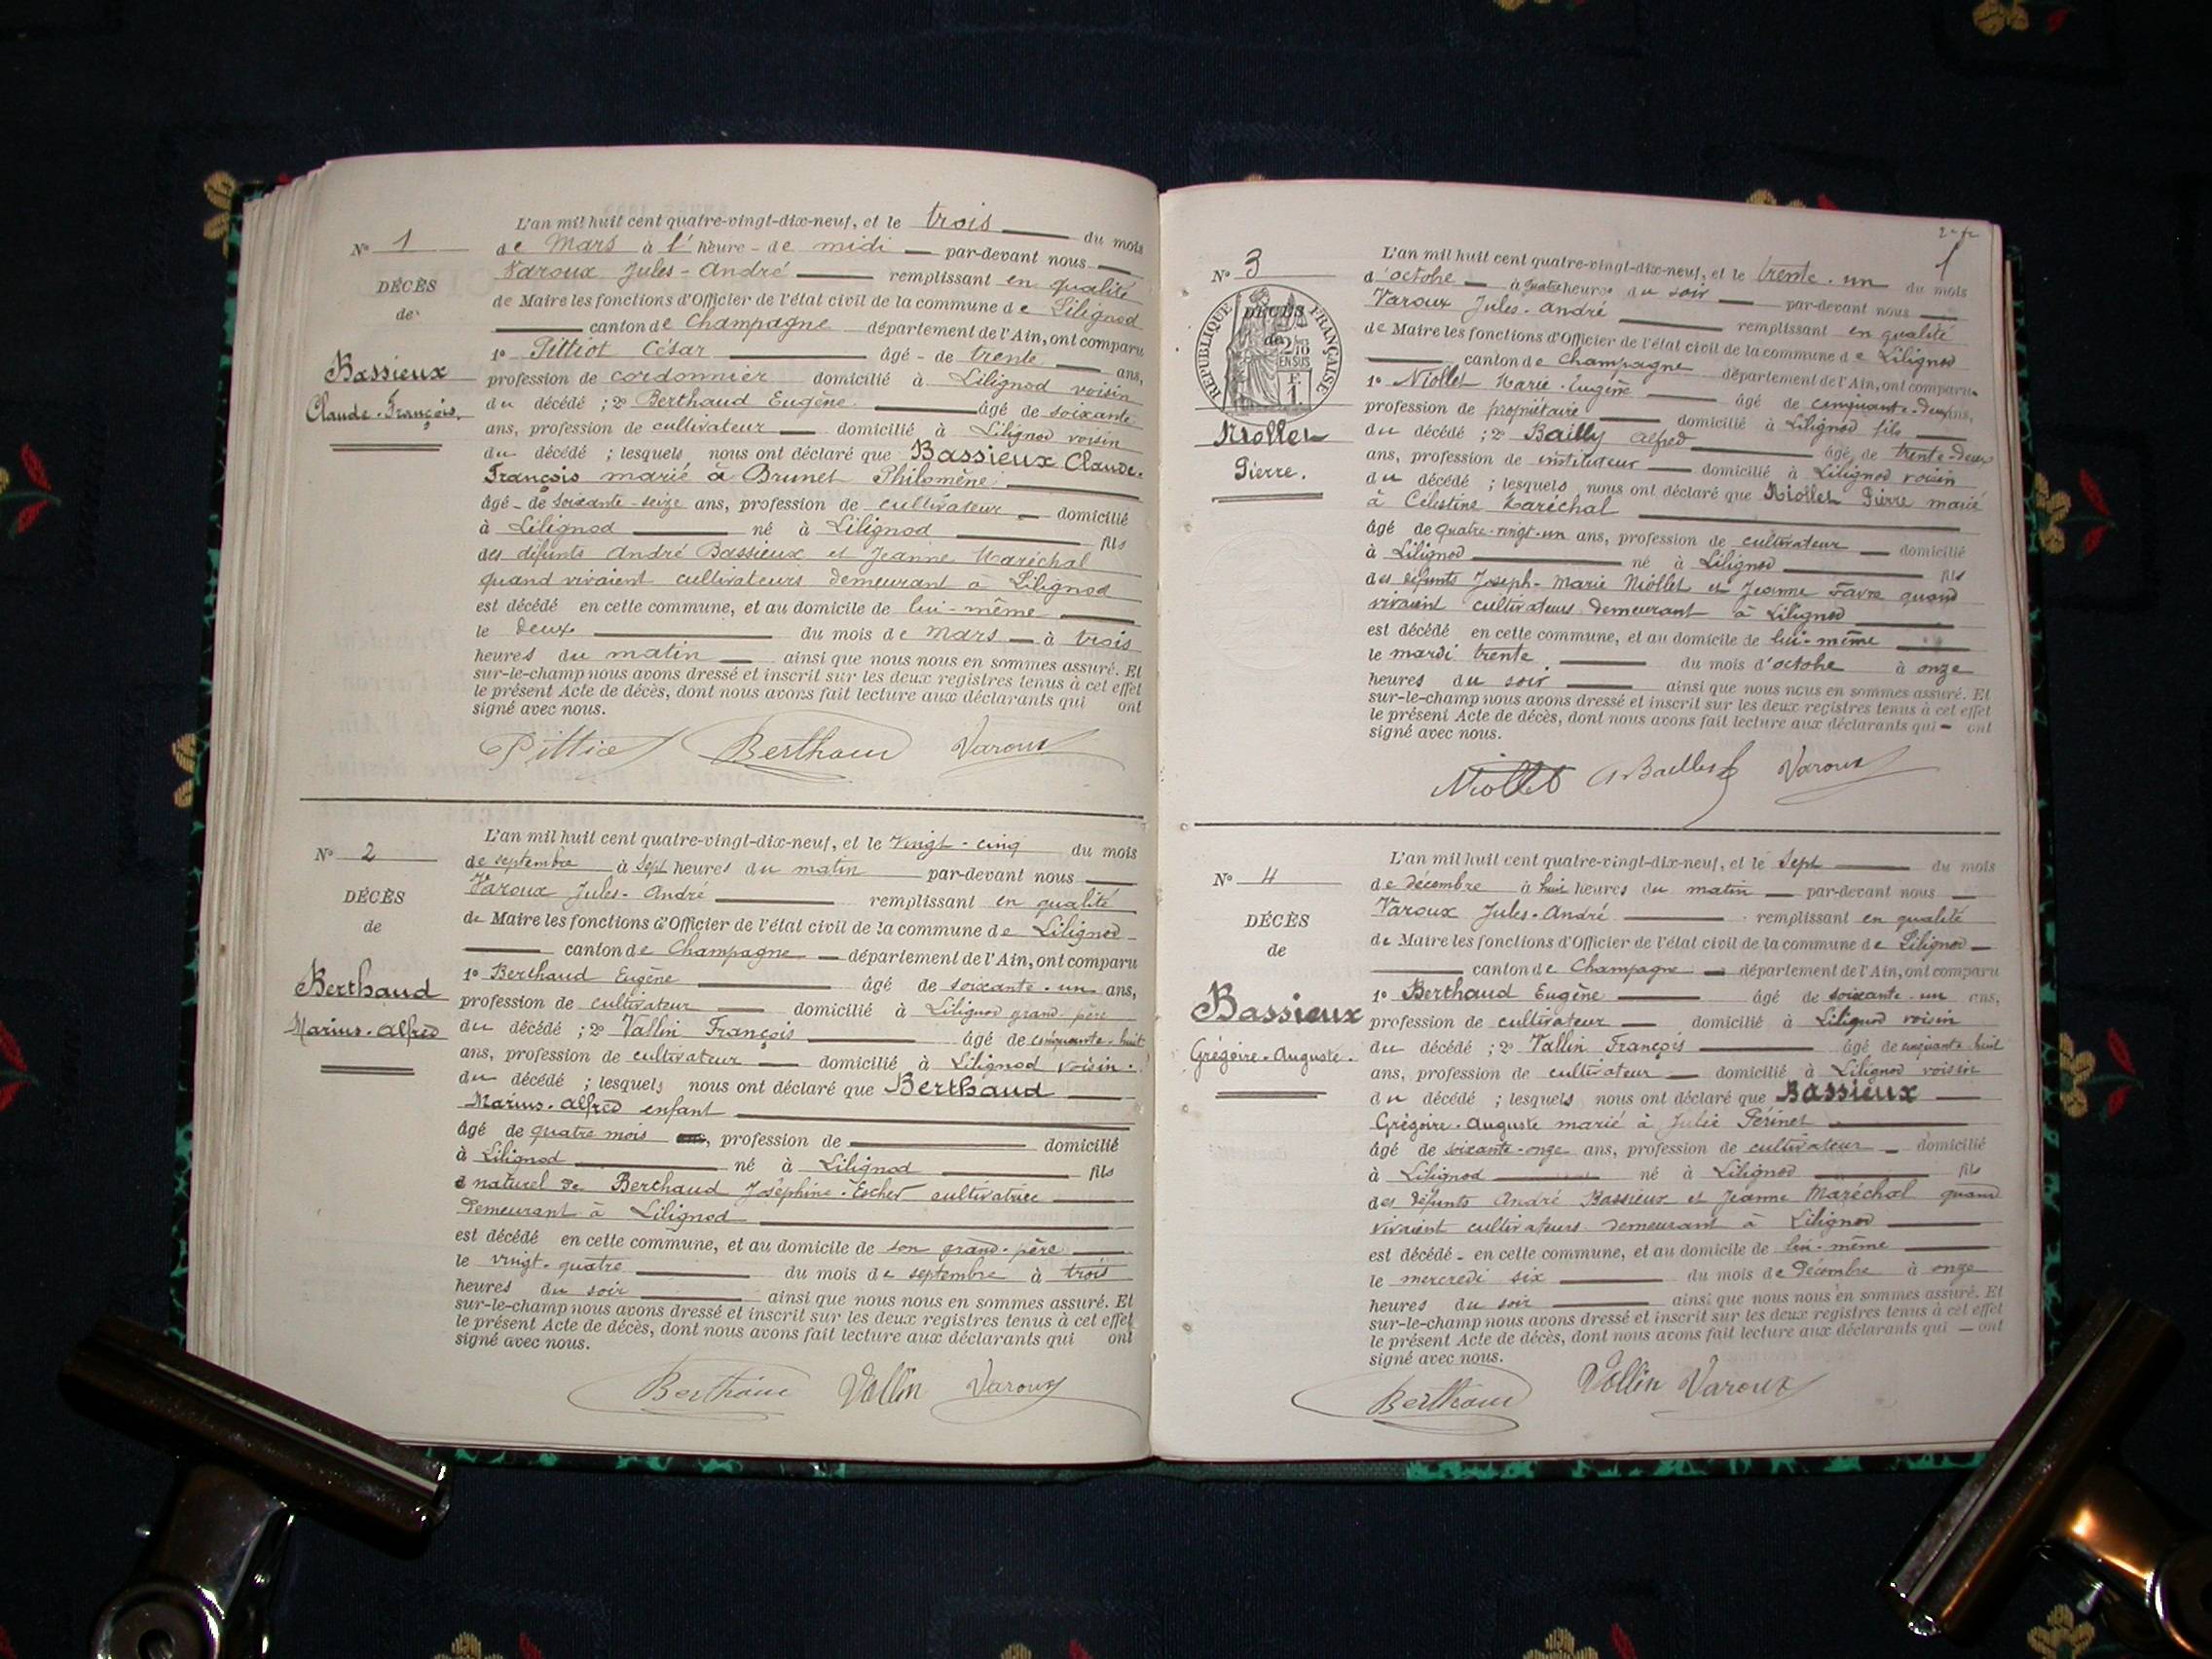 L'an mil huit cent quatre-vingt-dix-neuf, et le trois du mois
N° 1
de Mars à 1' heure - de midi par-devant nous
Varoux Jules-André remplissant en qualité
DÉCÈS
de Maire les fonctions d'Officier de l'état civil de la commune de Lilignod
de
canton de Champagne département de l'Ain, ont comparu
1° Tittiot César âgé - de trente ans,
Bassieux
profession de cordonnier domicilié à Lilignod voisin
Claude-François
du décédé ; 2° Berthaud Eugène âgé de soixante
ans, profession de cultivateur domicilié à Lilignod voisin
du décédé ; lesquels nous ont déclaré que Bassieux Claude-
François marié à Brunet Philomène
âgé - de soixante-seize ans, profession de cultivateur domicilié
à Lilignod né à Lilignod fils
des défunts André Bassieux et Jeanne Maréchal
quand vivaient cultivateurs demeurant à Lilignod
est décédé en cette commune, et au domicile de lui-même
le deux du mois de Mars à trois
heures du matin ainsi que nous nous en sommes assuré. Et
sur-le-champ nous avons dressé et inscrit sur les deux registres tenus à cet effet
le présent Acte de décès, dont nous avons fait lecture aux déclarants qui ont
signé avec nous.
Berthaud Varoux
L'an mil huit cent quatre-vingt-dix-neuf, et le vingt-cinq du mois
N° 2
de septembre à sept heures du matin par-devant nous
Varoux Jules-André remplissant en qualité
DÉCÈS
de Maire les fonctions d'Officier de l'état civil de la commune de Lilignod
de
canton de Champagne département de l'Ain, ont comparu
Berthaud
1° Berthaud Eugène âgé de soixante-un ans,
profession de cultivateur domicilié à Lilignod grand-père
Marius-Alfred
du décédé ; 2° Vallin François âgé de cinquante-huit
ans, profession de cultivateur domicilié à Lilignod voisin
du décédé ; lesquels nous ont déclaré que Berthaud
Marius-Alfred enfant
âgé de quatre mois, profession de domicilié
à Lilignod né à Lilignod fils
naturel de Berthaud Joséphine-Esther cultivatrice
demeurant à Lilignod
est décédé en cette commune, et au domicile de son grand-père
le vingt-quatre du mois de septembre à trois
heures du soir ainsi que nous nous en sommes assuré. Et
sur-le-champ nous avons dressé et inscrit sur les deux registres tenus à cet effet
le présent Acte de décès, dont nous avons fait lecture aux déclarants qui ont
signé avec nous.
Berthaud Vallin Varoux
1
L'an mil huit cent quatre-vingt-dix-neuf, et le trente-un du mois
N° 3
d'octobre à quatre heures du soir par-devant nous
Varoux Jules-André remplissant en qualité
RÉPUBLIQUE FRANÇAISE
DÉCÈS
de
2/10
EN SUS
F.
1.
de Maire les fonctions d'Officier de l'état civil de la commune de Lilignod
canton de Champagne département de l'Ain, ont comparu
1° Niollet Marie-Eugène âgé de cinquante-deux ans,
profession de propriétaire domicilié à Lilignod fils
Niollet
du décédé ; 2° Bailly Alfred âgé de trente-deux
ans, profession de instituteur domicilié à Lilignod voisin
Pierre.
du décédé ; lesquels nous ont déclaré que Niollet Pierre marié
à Célestine Maréchal
âgé de quatre-vingt-un ans, profession de cultivateur domicilié
à Lilignod né à Lilignod fils
des défunts Joseph-Marie Niollet et Jeanne Favre quand
vivaient cultivateurs demeurant à Lilignod
est décédé en cette commune, et au domicile de lui-même
le mardi trente du mois d'octobre à onze
heures du soir ainsi que nous nous en sommes assuré. Et
sur-le-champ nous avons dressé et inscrit sur les deux registres tenus à cet effet
le présent Acte de décès, dont nous avons fait lecture aux déclarants qui ont
signé avec nous.
Niollet Varoux
L'an mil huit cent quatre-vingt-dix-neuf, et le sept du mois
N° 4
de décembre à huit heures du matin par-devant nous
Varoux Jules-André remplissant en qualité
DÉCÈS
de Maire les fonctions d'Officier de l'état civil de la commune de Lilignod
de
canton de Champagne département de l'Ain, ont comparu
1° Berthaud Eugène âgé de soixante-un ans,
Bassieux
profession de cultivateur domicilié à Lilignod voisin
Grégoire-Auguste.
du décédé ; 2° Vallin François âgé de cinquante-huit
ans, profession de cultivateur domicilié à Lilignod voisin
du décédé ; lesquels nous ont déclaré que Bassieux
Grégoire-Auguste marié à Julie Périnet
âgé de soixante-onze ans, profession de cultivateur domicilié
à Lilignod né à Lilignod fils
des défunts André Bassieux et Jeanne Maréchal quand
vivaient cultivateurs demeurant à Lilignod
est décédé - en cette commune, et au domicile de lui-même
le mercredi six du mois de décembre à onze
heures du soir ainsi que nous nous en sommes assuré. Et
sur-le-champ nous avons dressé et inscrit sur les deux registres tenus à cet effet
le présent Acte de décès, dont nous avons fait lecture aux déclarants qui ont
signé avec nous.
Berthaud Vallin Varoux